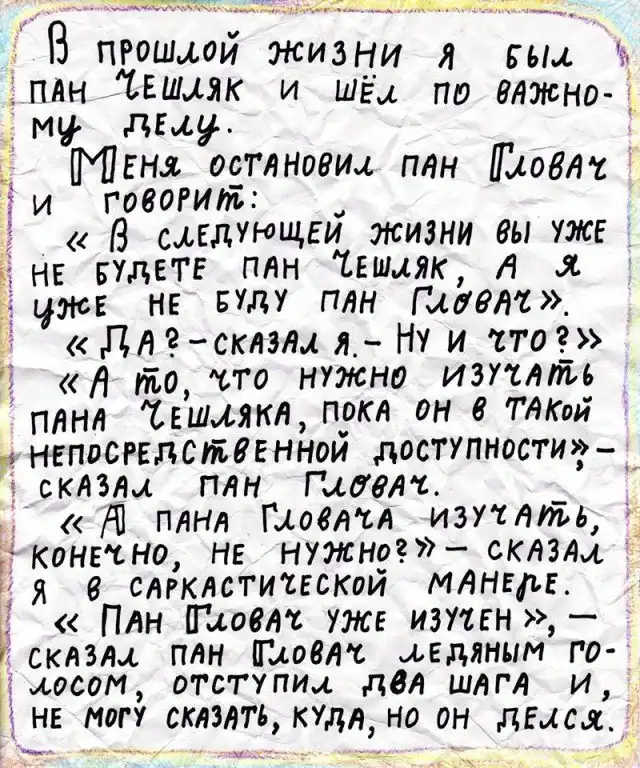 В ПРОШЛОЙ ЖИЗНИ Я БЫЛ
ПАН ЧЕШЛЯК И ШЁЛ ПО ВАЖНО-
МУ ДЕЛУ.
МЕНЯ ОСТАНОВИЛ ПАН ГЛОВАЧ
И ГОВОРИТ:
« В СЛЕДУЮЩЕЙ ЖИЗНИ ВЫ УЖЕ
НЕ БУДЕТЕ ПАН ЧЕШЛЯК, А Я
УЖЕ НЕ БУДУ ПАН ГЛОВАЧ».
« ДА? – СКАЗАЛ Я. – НУ И ЧТО?»
« А ТО, ЧТО НУЖНО ИЗУЧАТЬ
ПАНА ЧЕШЛЯКА, ПОКА ОН В ТАКОЙ
НЕПОСРЕДСТВЕННОЙ ДОСТУПНОСТИ», –
СКАЗАЛ ПАН ГЛОВАЧ.
« А ПАНА ГЛОВАЧА ИЗУЧАТЬ,
КОНЕЧНО, НЕ НУЖНО?» – СКАЗАЛ
Я В САРКАСТИЧЕСКОЙ МАНЕРЕ.
« ПАН ГЛОВАЧ УЖЕ ИЗУЧЕН», –
СКАЗАЛ ПАН ГЛОВАЧ ЛЕДЯНЫМ ГО-
ЛОСОМ, ОТСТУПИЛ ДВА ШАГА И,
НЕ МОГУ СКАЗАТЬ, КУДА, НО ОН ДЕЛСЯ.